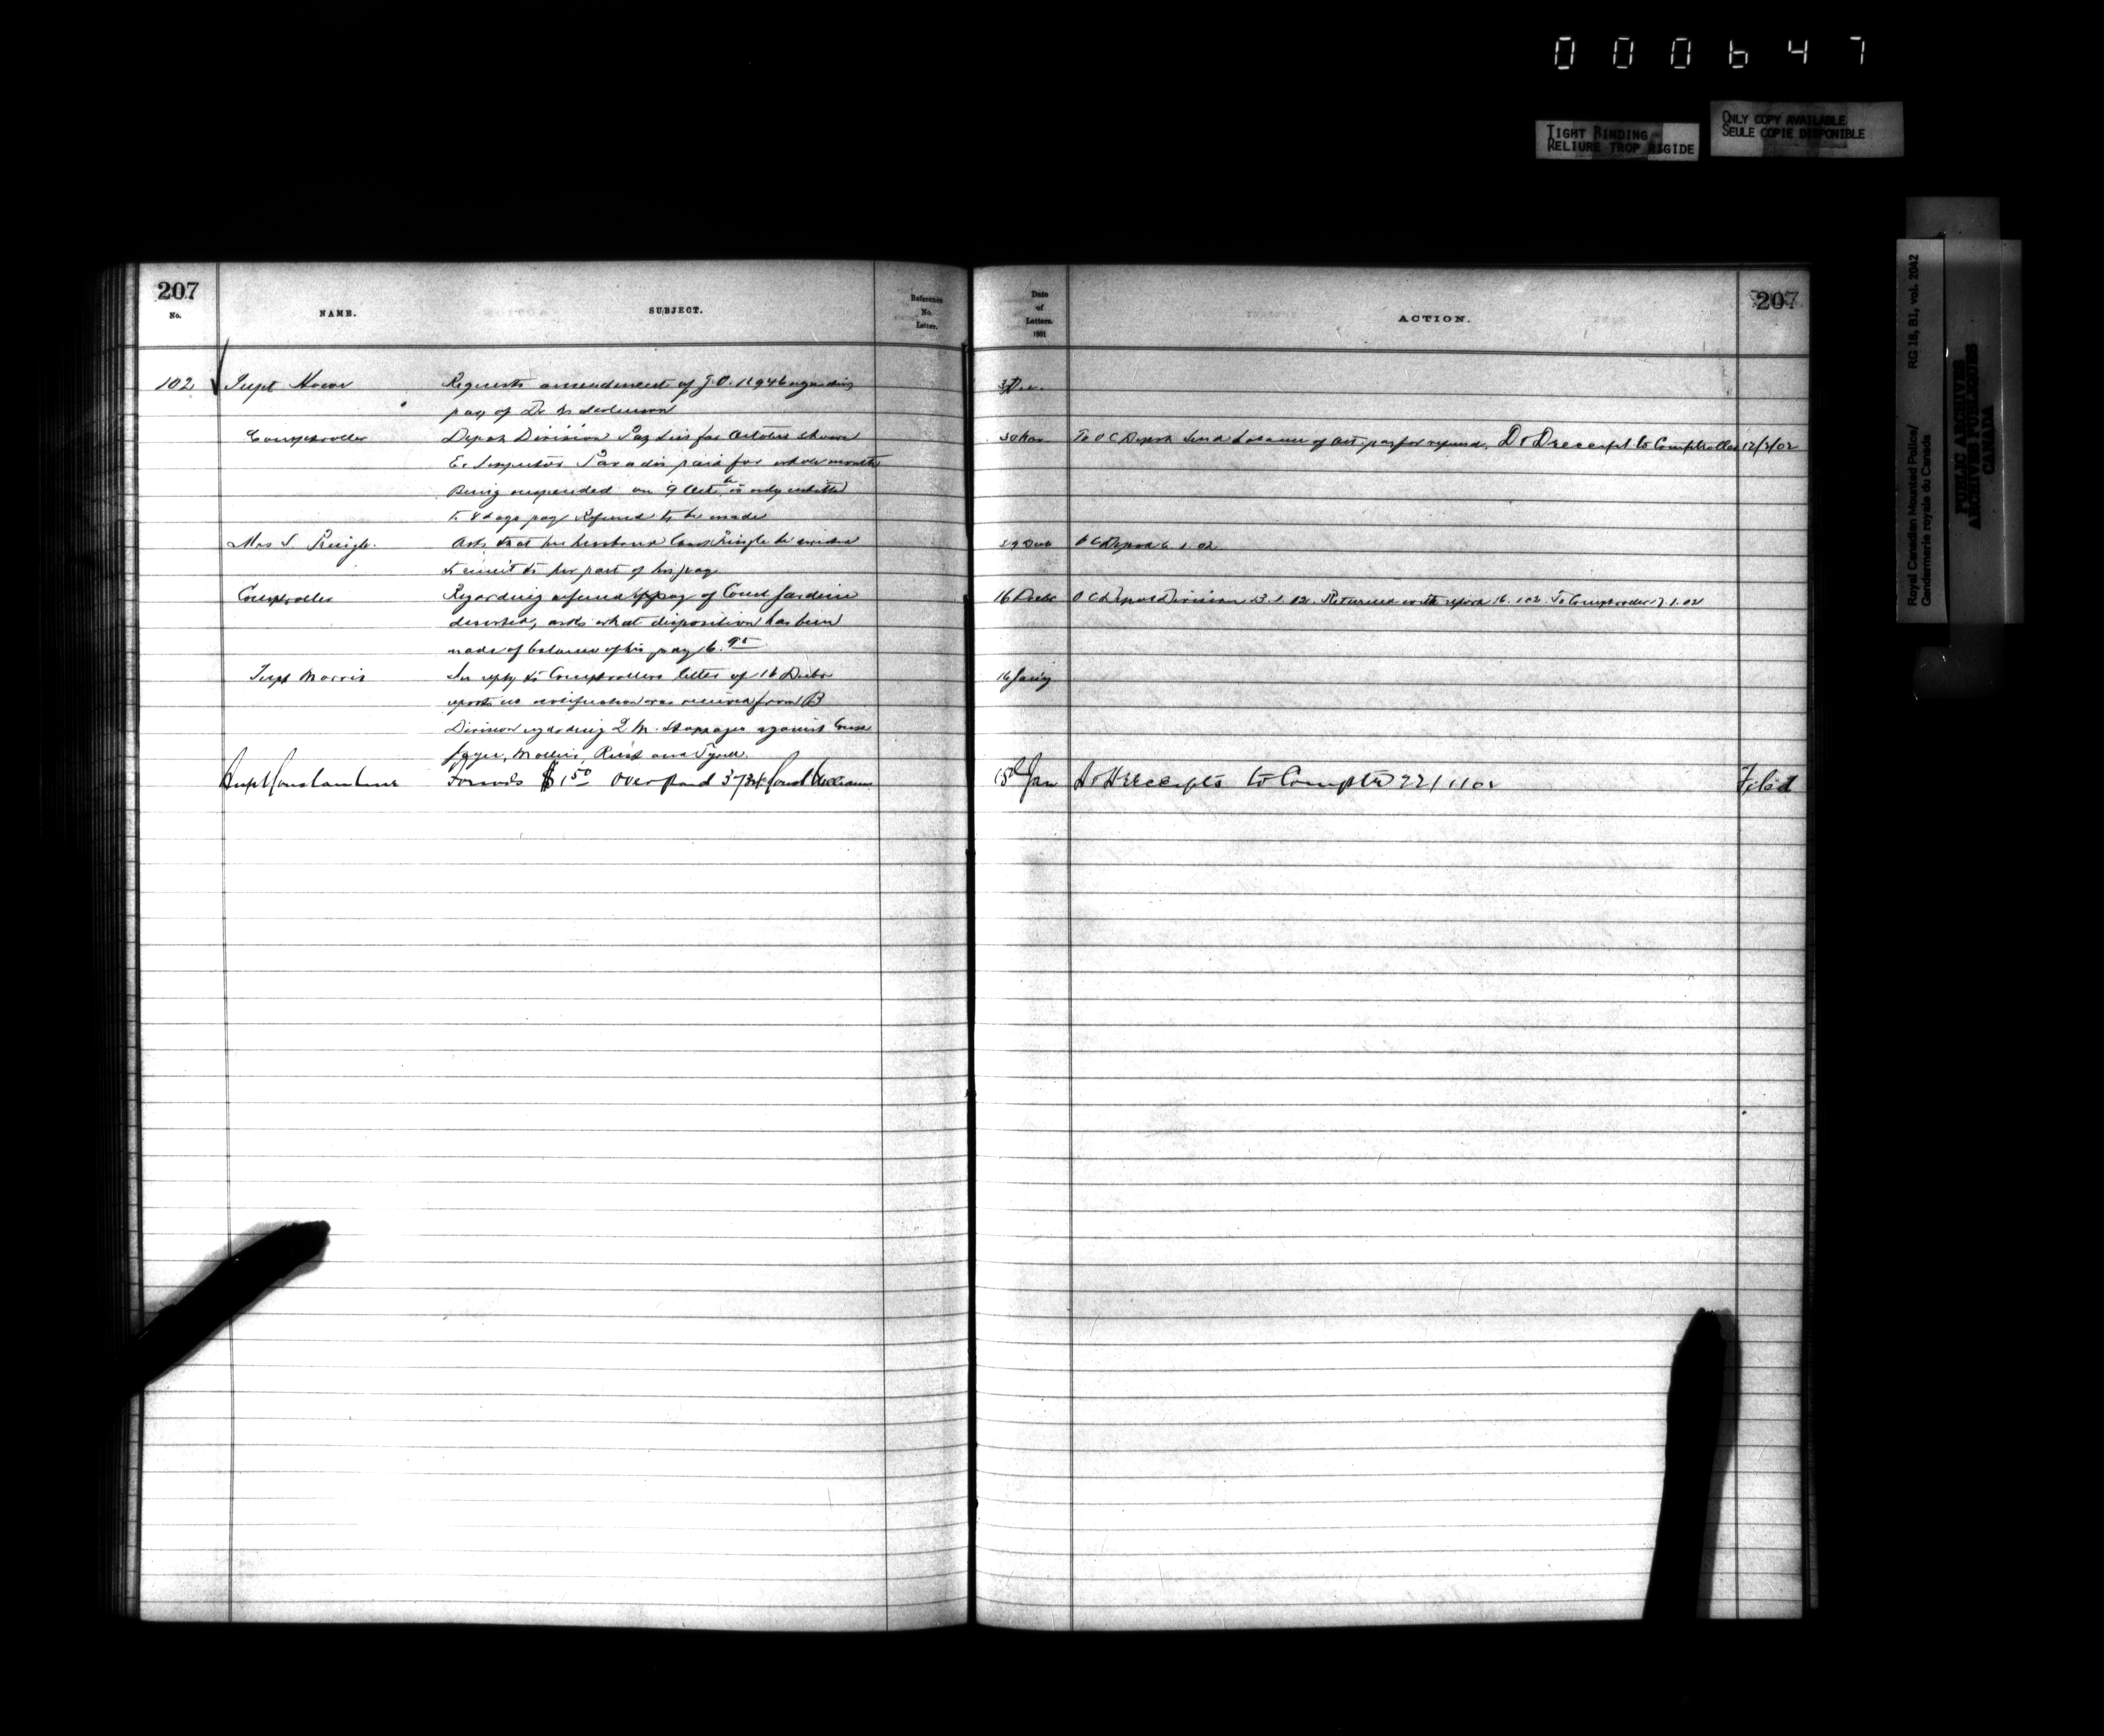 000647
TIGHT BINDING
RELIURE TROP RIGIDE
ONLY COPY AVAILABLE
SEULE COPIE DISPONIBLE
Royal Canadian Mounted Police/
Gendarmerie royale du Canada
RG 18, B1, vol. 2042
PUBLIC ARCHIVES
ARCHIVES PUBLIQUES
CANADA
207
No.
NAME.
SUBJECT.
Reference
No.
Letter.
Date
of
Letters.
1901
ACTION.
207
102 Supt Howe Requests amendment of G.O. regarding
pay of Dr
Comptroller Depot Division Pay List for October shows 30 Nov To O C Depot Send balance of Oct. pay for refund. D & D receipt to Comptroller 12/2/02
Ex Inspector Paradis paid for whole month
Being suspended on 9 Octr is only entitled
to 8 days pay Refund to be made
Mrs S. Pringle. Asks that her husband Const Pringle be O C Depot 6.1.02
to remit to her part of his pay
Comptroller Regarding refund of pay of Const Jardine 16 Decbr O C Depot Division 13.1.02. Returned with report 16.1.02 To Comptroller 17.1.02
deserted, asks what disposition has been
made of balance of his pay 6.95
Supt Morris In reply to Comptrollers letter of 16 Decbr 16 Jany
reports no notification was received from B
Division regarding Q M. Stoppages against Const
and Tyrell.
Supt Constantine Forwds $1.50 Over paid Const Williams 15th Jan D & D receipts to Comptr 22/1/02 Filed